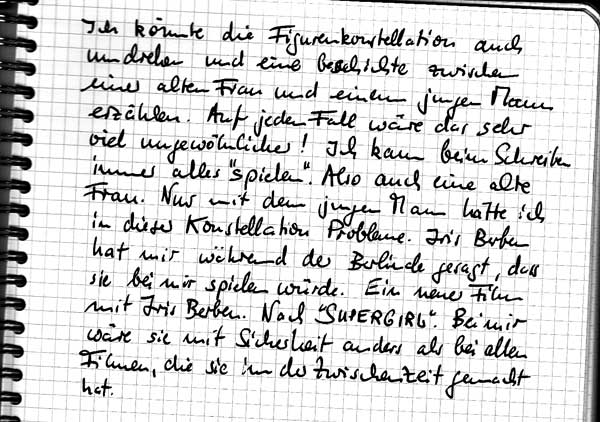 Ich könnte die Figurenkonstellation auch
umdrehen und eine Geschichte zwischen
einer alten Frau und einem jungen Mann
erzählen. Auf jeden Fall wäre das sehr
viel ungewöhnlicher! Ich kann beim Schreiben
immer alles "spielen". Also auch eine alte
Frau. Nur mit dem jungen Mann hätte ich
in dieser Konstellation Probleme. Iris Berben
hat mir während der Berlinale gesagt, dass
sie bei mir spielen würde. Ein neuer Film
mit Iris Berben. Nach "SUPERGIRL". Bei mir
wäre sie mit Sicherheit anders als bei allen
Filmen, die sie in der Zwischenzeit gemacht
hat.